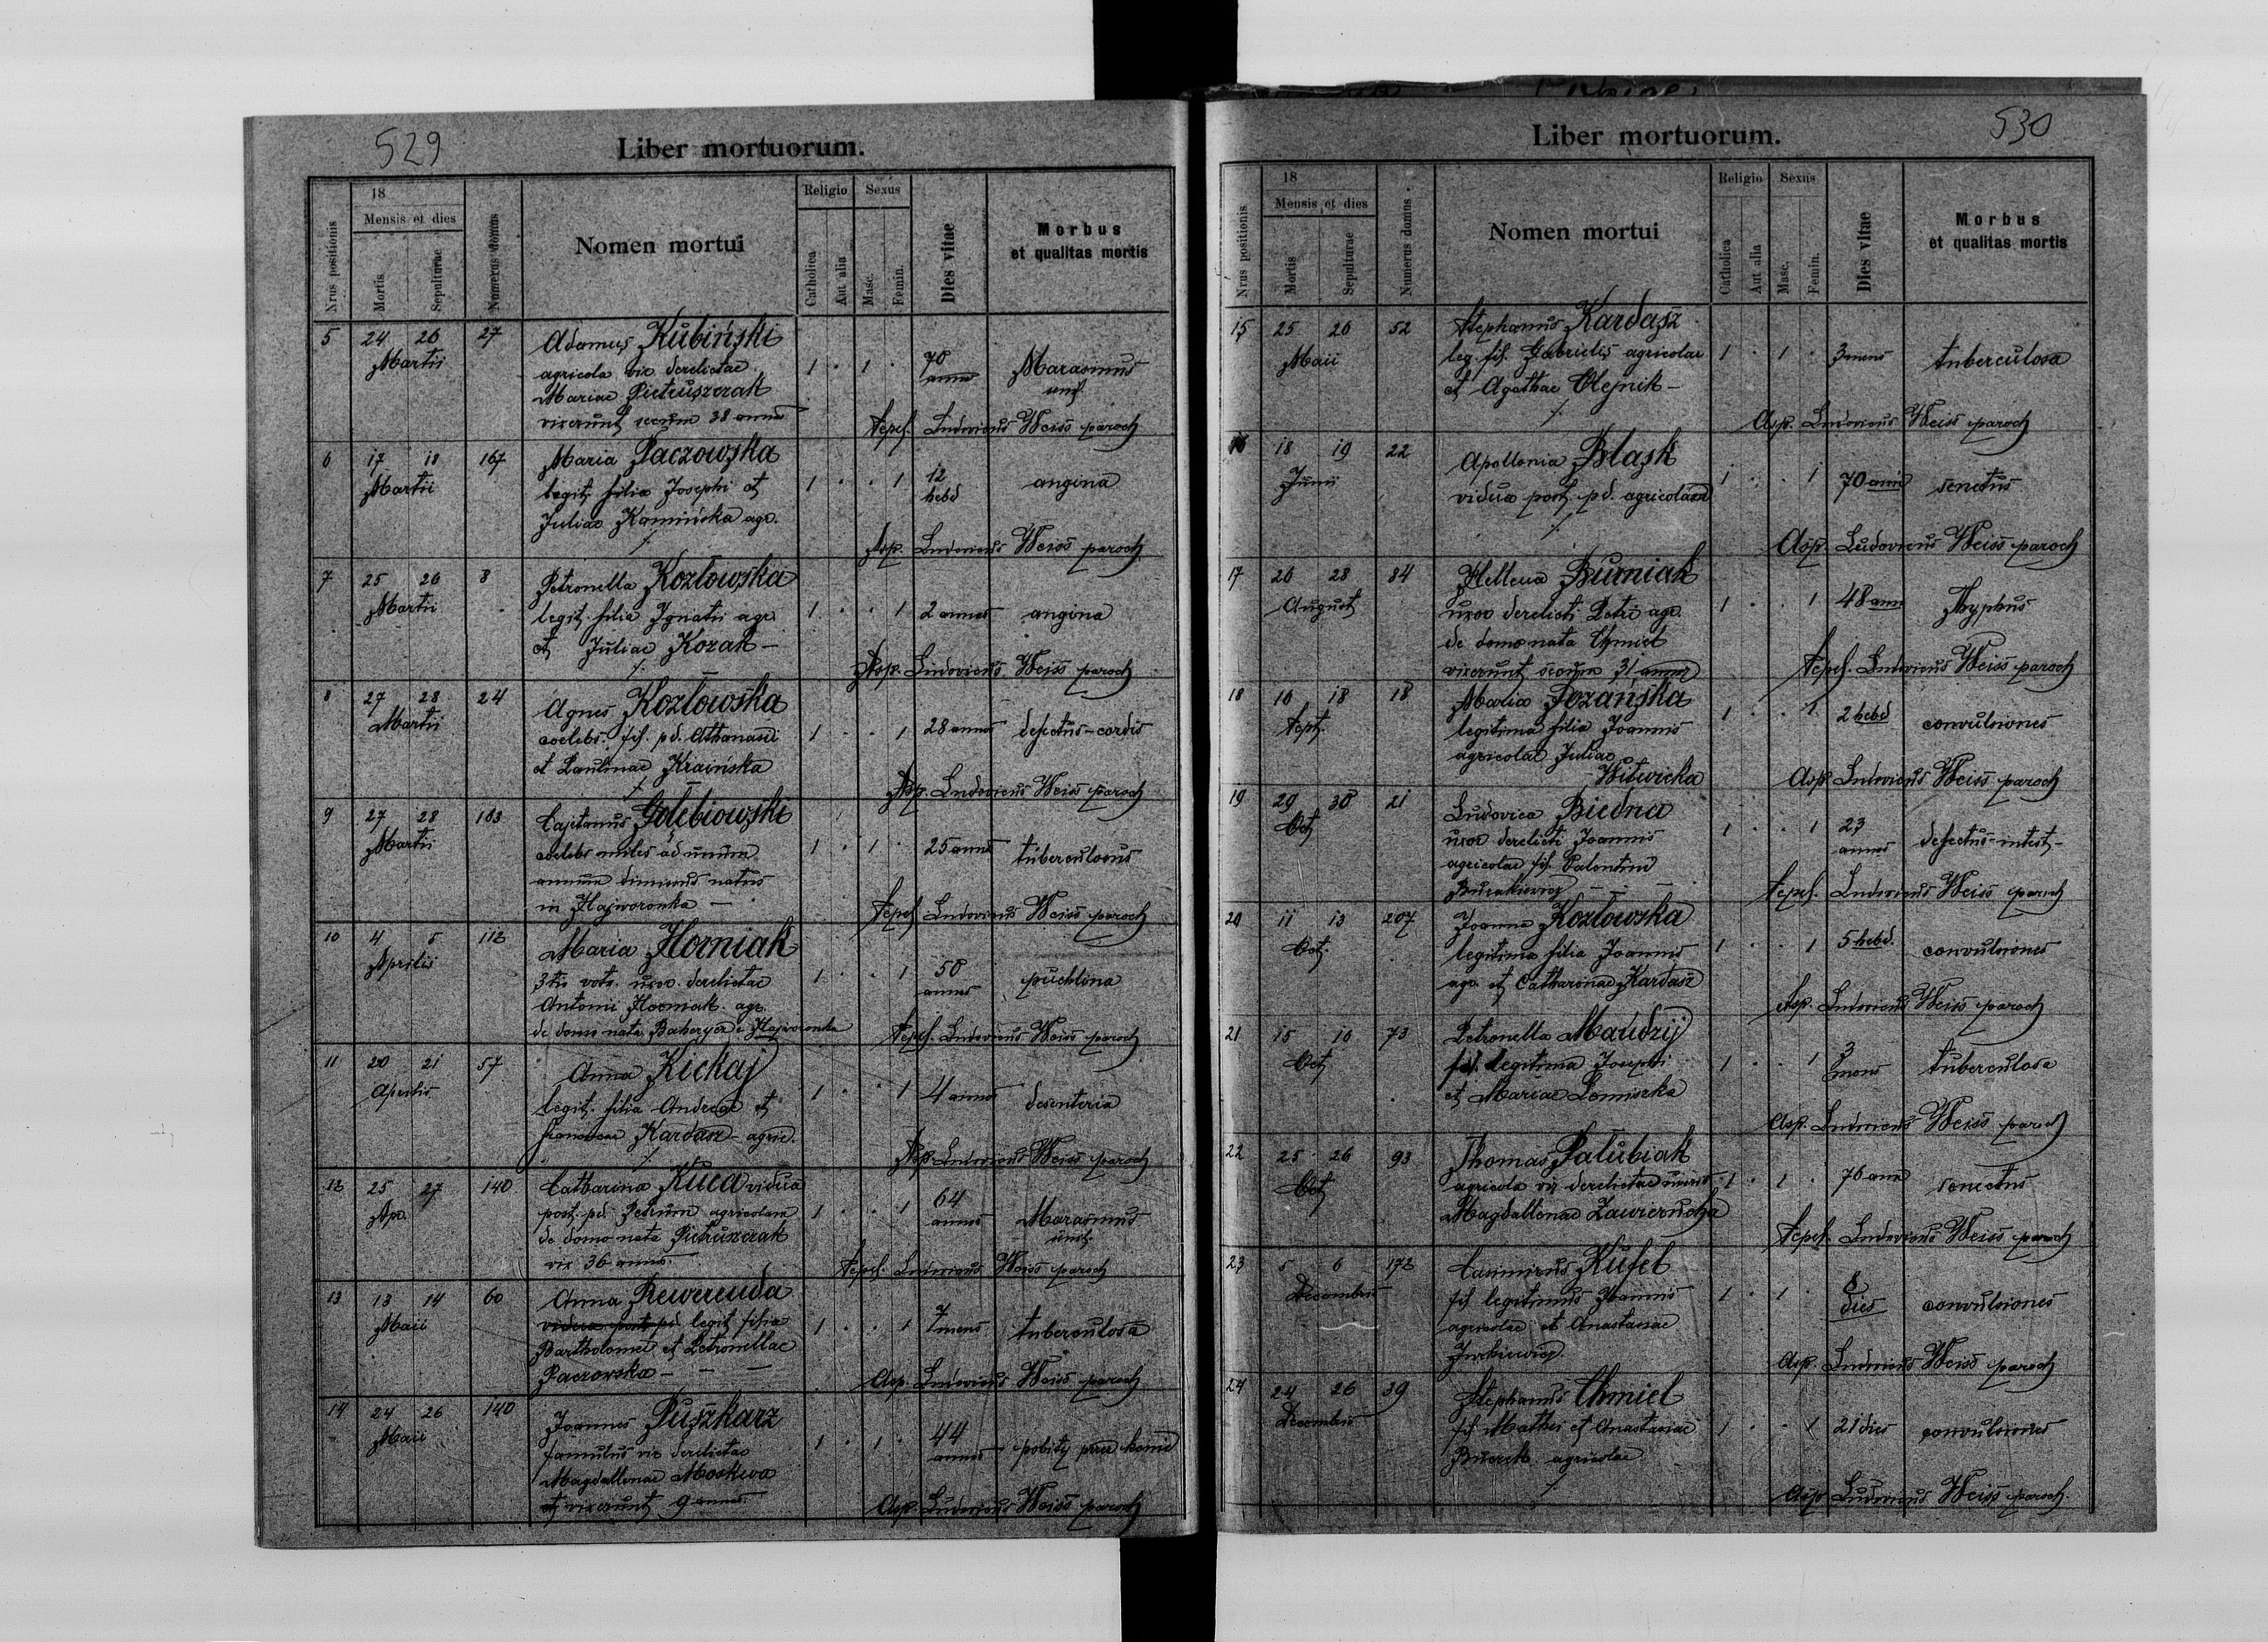 529
Liber mortuorum.
Nrus positionis
18
Mensis et dies
Mortis
Sepulturae
Numerus domus
Nomen mortui
Religio
Catholica
Aut alia
Sexus
Masc.
Femin.
Dies vitae
Morbus
et qualitas mortis
5 24 26 27 Adamus Kubiński
Martii agricola vir derelictae 1 · 1 · 70 Marasmus
Mariae Pietruszczak anno
vixerunt secum 38 annos
Ludovicus Weiss paroch
6 17 18 167 Maria Paczowska
Martii legit. filia Josephi et 1 · · 1 12 angina
Juliae Kamińska agr. hebd
Asp. Ludovicus Weiss paroch
7 25 26 8 Petronella Kozłowska
Martii legit. filia Ignatii agr. 1 · · 1 2 annos angina
et Juliae Kozak —
Asp. Ludovicus Weiss paroch
8 27 28 24 Agnes Kozłowska
Martii coelebs. fil. pd. Athanasii 1 · · 1 28 annos defectus-cordis
et Paulinae Kraińska
Asp. Ludovicus Weiss paroch
9 27 28 183 Cajetanus Gołębiowski
Martii coelebs miles ad unum 1 · 1 · 25 annos tuberculosus
annum dimissus natus
in Hajworonka —
Ludovicus Weiss paroch
10 4 5 112 Maria Horniak
Aprilis 3tio voto. uxor. derelictae 1 · · 1 50 puchlina
Antonii Horniak. agr. annos
de domo nata e Hajworonka
Ludovicus Weiss paroch
11 20 21 57 Anna Kickaj
Aprilis legit. filia Andreae et 1 · · 1 4 annos desenteria
Franciscae Kardasz - agric.
Asp. Ludovicus Weiss paroch
12 25 27 140 Catharina Kuca vidua
Apr. post pd. Petrum agricolam 1 · · 1 64 Marasmus
de domo nata Pietruszczak annos
vix 36 annos.
Ludovicus Weiss paroch
13 13 14 60 Anna Rewerenda
Maii vidua post pd legit filia 1 · · 1 7 mens tuberculosa
Bartholomei et Petronellae
Paczowska — — —
Asp. Ludovicus Weiss paroch
14 24 26 140 Joannes Puszkarz
Maii famulus vir derelictae 1 · 1 · 44 pobity przez konie
Magdallenae Moskwa annos
et vixerunt 9 annos
Asp. Ludovicus Weiss paroch
530
Liber mortuorum.
Nrus positionis
18
Mensis et dies
Mortis
Sepulturae
Numerus domus.
Nomen mortui
Religio
Catholica
Aut alia
Sexus
Masc.
Femin.
Dies vitae
Morbus
et qualitas mortis
15 25 26 52 Stephanus Kardasz
Maii leg. fil. Gabrielis agricolae 1 · 1 · 3 mens tuberculosa
et Agathae Olejnik —
Asp. Ludovicus Weiss paroch
16 18 19 22 Apollonia Błask
Junii vidua post. pd. agricolam 1 · · 1 70 ann senectus
Asp. Ludovicus Weiss paroch
17 26 28 84 Hellena Burniak
August uxor derelicti Petri agr. 1 · · 1 48 ann Thyphus
de domo nata Chmiel
vixerunt secum 31 annos
Ludovicus Weiss paroch
18 16 18 18 Maria Pozańska
Sept. legitima filia Joannis 1 · · 1 2 hebd convulsiones
agricolae Juliae
Witwicka
Asp. Ludovicus Weiss paroch
19 29 30 21 Ludovica Biedna
Oct uxor derelicti Joannis 1 · · 1 23 defectus-intest-
agricolae fil. Valentini annos
Burakiewicz — —
Ludovicus Weiss paroch
20 11 13 207 Joanna Kozłowska
Oct. legitima filia Joannis 1 · · 1 5 hebd. convulsiones
agr. et Catharinae Kardasz
Asp. Ludovicus Weiss paroch
21 15 16 73 Petronella Maudzij
Oct fil. legitima Josephi 1 · · 1 3 tuberculosa
et Mariae Lomiszka mens
Asp. Ludovicus Weiss paroch
22 25 26 93 Thomas Pałubiak
Oct agricola vir derelictae 1 · 1 · 76 ann senectus
Magdallenae Zawierucha
Ludovicus Weiss paroch
23 5 6 172 Casimirus Kufel
Decembris fil legitimus Joannis 1 · 1 · 8 convulsiones
agricolae et Anastasiae dies
Jurkiewicz.
Asp. Ludovicus Weiss paroch
24 24 26 39 Stephanus Chmiel
Decembris fil Mathei et Anastasiae 1 · · 1 21 dies convulsiones
agricolae
Asp. Ludovicus Weiss paroch.